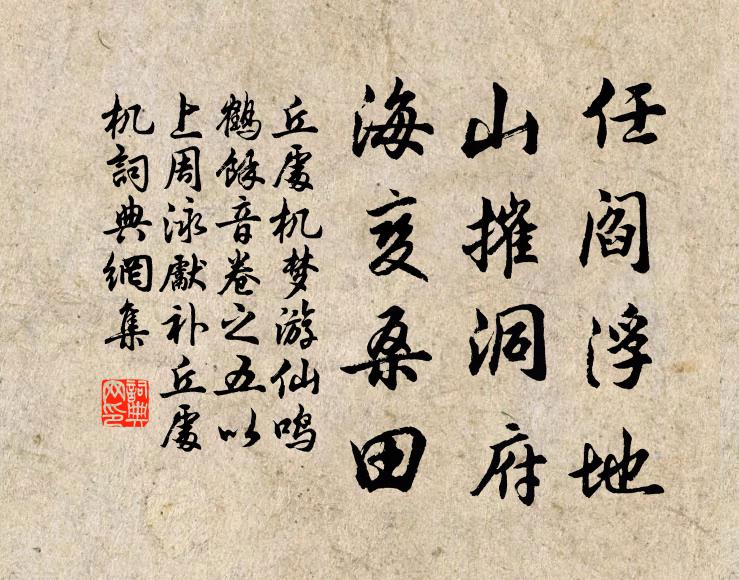 任阎浮地
山摧洞府
海变桑田
丘處机梦游仙鸣
鶴餘音卷之五以
上周泳獻补丘處
机詞典網集
詞典
网印